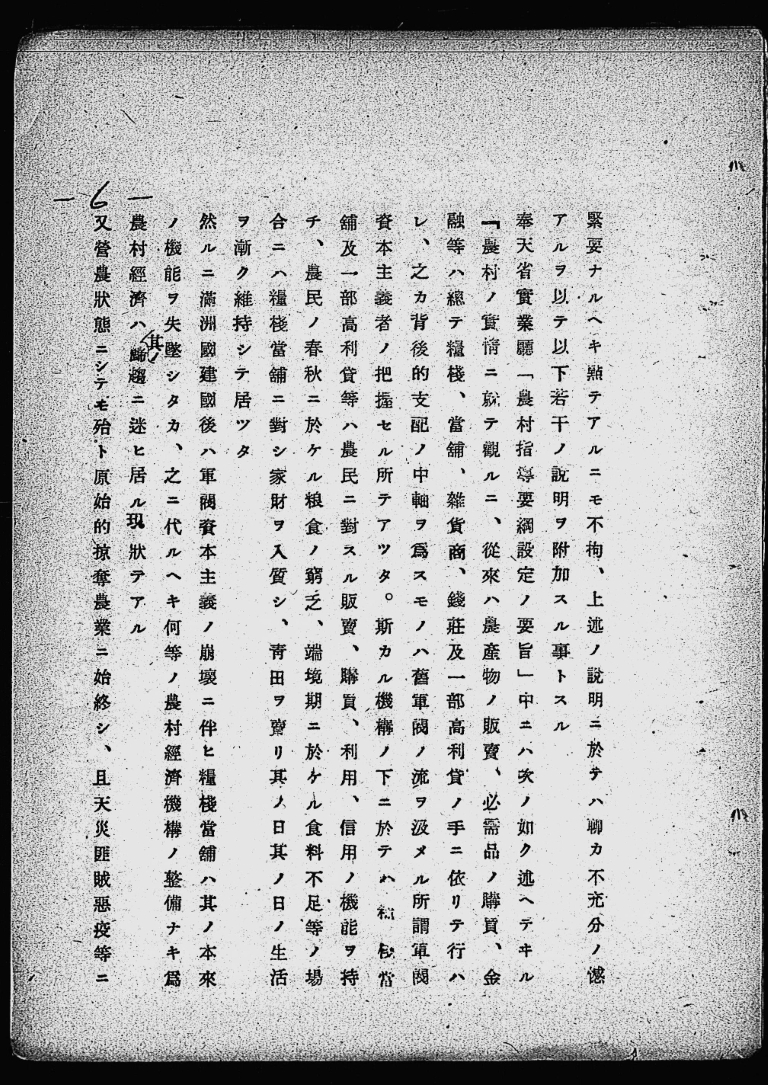 緊要ナルヘキ點テアルニモ不拘、上述ノ說明ニ於テハ聊カ不充分ノ憾
アルヲ以テ以下若干ノ說明ヲ附加スル事トスル
奉天省實業廳「農村指導要綱設定ノ要旨」中ニハ次ノ如ク述ヘテヰル
「農村ノ實情ニ就テ觀ルニ、從來ハ農產物ノ販賣、必需品ノ購買、金
融等ハ總テ糧棧、當舖、雜貨商、錢莊及一部高利貸ノ手ニ依リテ行ハ
レ、之カ背後的支配ノ中軸ヲ爲スモノハ舊軍閥ノ流ヲ汲メル所謂軍閥
資本主義者ノ把握セル所テアツタ。斯カル機構ノ下ニ於テハ糧棧當
舖及一部高利貸等ハ農民ニ對スル販賣、購買、利用、信用ノ機能ヲ持
チ、農民ノ春秋ニ於ケル粮食ノ窮乏、端境期ニ於ケル食料不足等ノ場
合ニハ糧棧當舖ニ對シ家財ヲ入質シ、靑田ヲ賣リ其ノ日其ノ日ノ生活
ヲ漸ク維持シテ居ツタ
然ルニ滿洲國建國後ハ軍閥資本主義ノ崩壞ニ伴ヒ糧棧當舖ハ其ノ本來
ノ機能ヲ失墜シタカ、之ニ代ルヘキ何等ノ農村經濟機構ノ整備ナキ爲
農村經濟ハ其ノ歸趨ニ迷ヒ居ル現狀テアル
又營農狀態ニシテモ殆ト原始的掠奪農業ニ始終シ、且天災匪賊惡疫等ニ
— 6 —